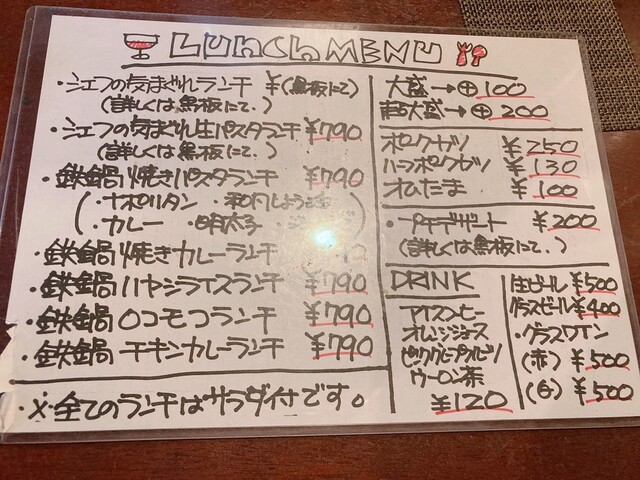 LUNCH MENU
・シェフの気まぐれランチ ¥(黒板にて)
(詳しくは黒板にて.)
・シェフの気まぐれ生パスタランチ ¥790
(詳しくは黒板にて.)
・鉄鍋焼きパスタランチ ¥790
(・ナポリタン ・和風しょうゆ
・カレー ・明太子
・鉄鍋焼きカレーランチ
・鉄鍋ハヤシライスランチ ¥790
・鉄鍋ロコモコランチ ¥790
・鉄鍋チキンカレーランチ ¥790
・※・全てのランチはサラダ付です。
大盛→⊕100
超大盛→⊕200
ポークカツ ¥250
ハーフポークカツ ¥130
オムたま ¥100
・プチデザート ¥200
(詳しくは黒板にて.)
DRINK
アイスコーヒー
オレンジジュース
ピンクグレープフルーツ
ウーロン茶
¥120
生ビール ¥500
グラスビール ¥400
・グラスワイン
(赤) ¥500
(白) ¥500